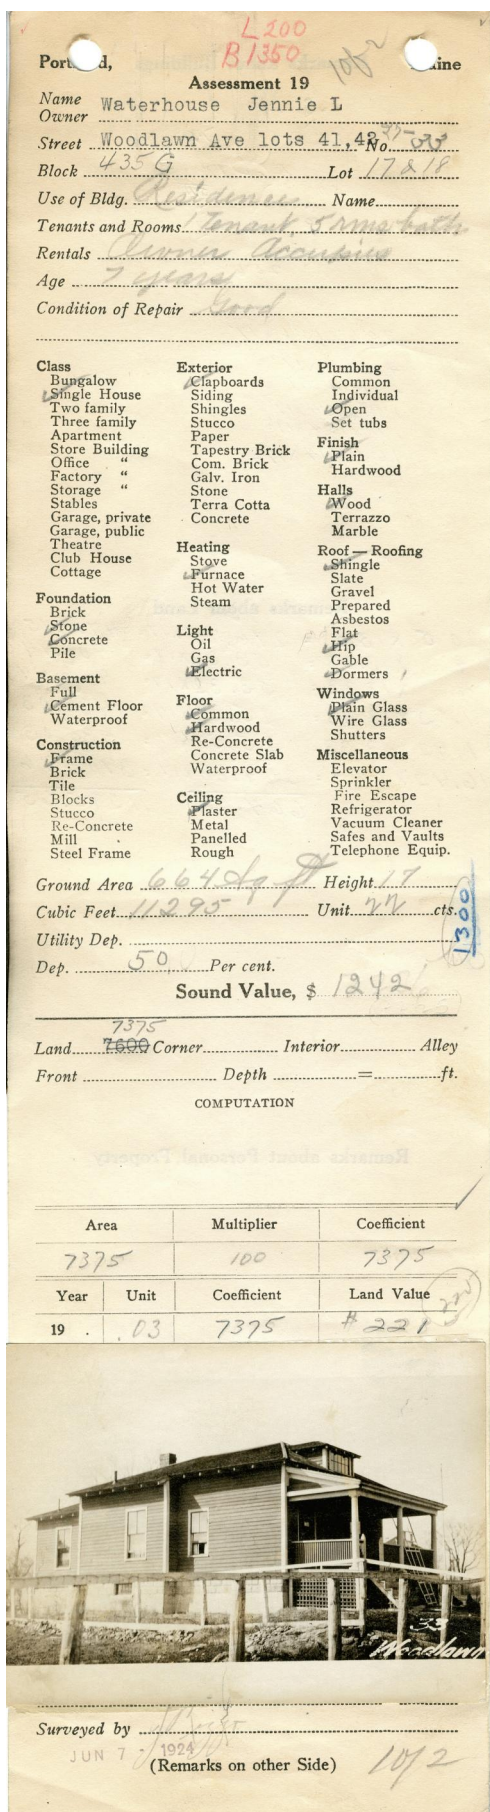 L200
B1350
1 of 2
Portland, Maine
Assessment 19
Name Owner Waterhouse Jennie L
Street Woodlawn Ave lots 41,42 No. 37-33
Block 435 G Lot 17 & 18
Use of Bldg. Residence Name
Tenants and Rooms 1 Tenant, 5 rms bath
Rentals Owner Occupies
Age 7 years
Condition of Repair Good
Class
Bungalow
Single House
Two family
Three family
Apartment
Store Building
Office "
Factory "
Storage "
Stables
Garage, private
Garage, public
Theatre
Club House
Cottage
Foundation
Brick
Stone
Concrete
Pile
Basement
Full
Cement Floor
Waterproof
Construction
Frame
Brick
Tile
Blocks
Stucco
Re-Concrete
Mill
Steel Frame
Exterior
Clapboards
Siding
Shingles
Stucco
Paper
Tapestry Brick
Com. Brick
Galv. Iron
Stone
Terra Cotta
Concrete
Heating
Stove
Furnace
Hot Water
Steam
Light
Oil
Gas
Electric
Floor
Common
Hardwood
Re-Concrete
Concrete Slab
Waterproof
Ceiling
Plaster
Metal
Panelled
Rough
Plumbing
Common
Individual
Open
Set tubs
Finish
Plain
Hardwood
Halls
Wood
Terrazzo
Marble
Roof — Roofing
Shingle
Slate
Gravel
Prepared
Asbestos
Flat
Hip
Gable
Dormers
Windows
Plain Glass
Wire Glass
Shutters
Miscellaneous
Elevator
Sprinkler
Fire Escape
Refrigerator
Vacuum Cleaner
Safes and Vaults
Telephone Equip.
Ground Area 664 Sq ft Height 17
Cubic Feet 11295 Unit 22 cts.
1300
Utility Dep.
Dep. 50 Per cent.
Sound Value, $ 1242
7375
Land 7600 Corner Interior Alley
Front Depth = ft.
COMPUTATION
Area Multiplier Coefficient
7375 100 7375
Year Unit Coefficient Land Value
19 . .03 7375 $ 221
33
Woodlawn
Surveyed by
JUN 7 - 1924
(Remarks on other Side)
1 of 2